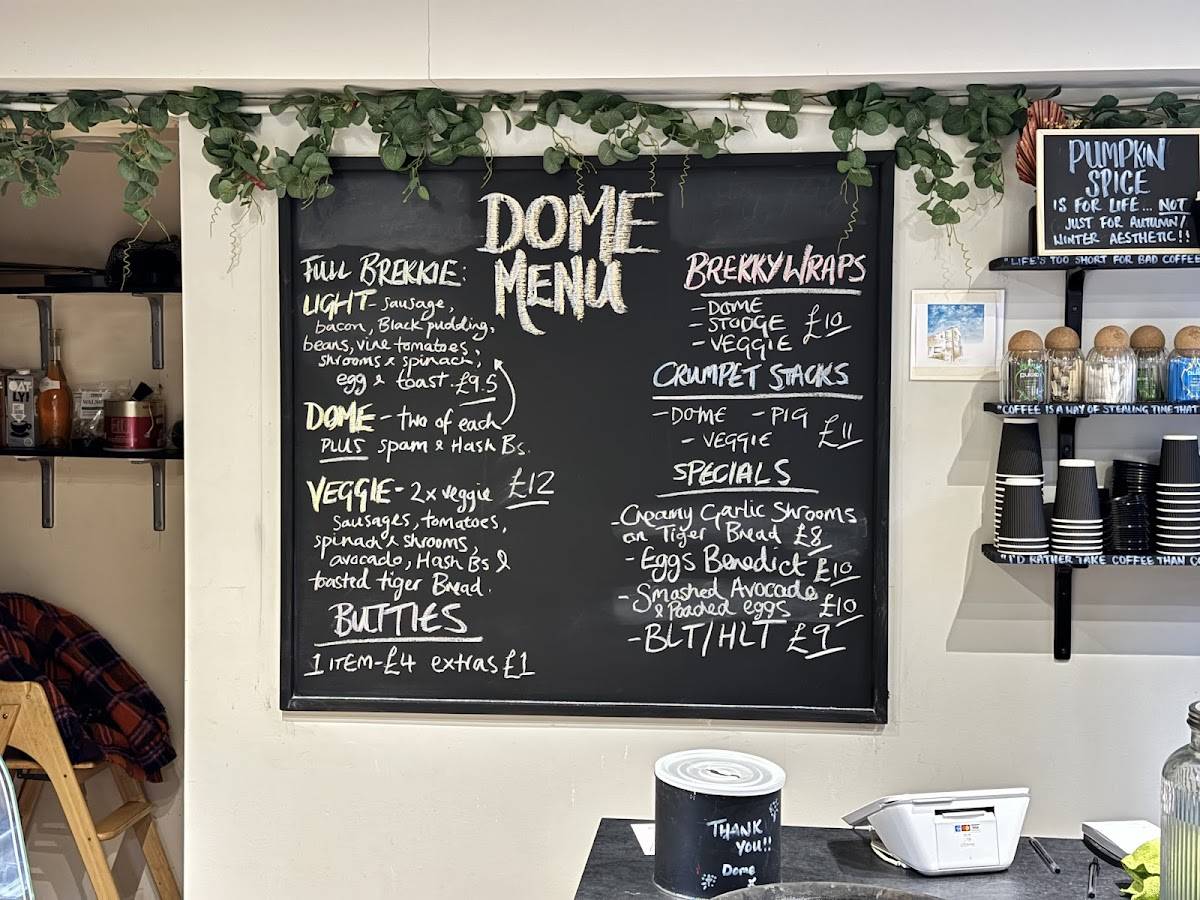 DOME
MENU
FULL BREKKIE:
LIGHT - sausage,
bacon, Black pudding,
beans, vine tomatoes,
shrooms & spinach,
egg & toast. £9.5
DOME - two of each
PLUS spam & Hash Bs.
VEGGIE - 2x veggie £12
sausages, tomatoes,
spinach & shrooms,
avocado, Hash Bs &
toasted tiger Bread.
BUTTIES
1 ITEM - £4 extras £1
BREKKY WRAPS
- DOME
- STODGE £10
- VEGGIE
CRUMPET STACKS
- DOME - PIG
- VEGGIE £11
SPECIALS
- Creamy Garlic Shrooms
on Tiger Bread £8
- Eggs Benedict £10
- Smashed Avocado
& Poached eggs £10
- BLT/HLT £9
PUMPKIN
SPICE
IS FOR LIFE... NOT
JUST FOR AUTUMN/
WINTER AESTHETIC!!
"LIFE'S TOO SHORT FOR BAD COFFEE
"COFFEE IS A WAY OF STEALING TIME THAT
"I'D RATHER TAKE COFFEE THAN CO
OAT
LY!
THANK
YOU!!
Dome
x